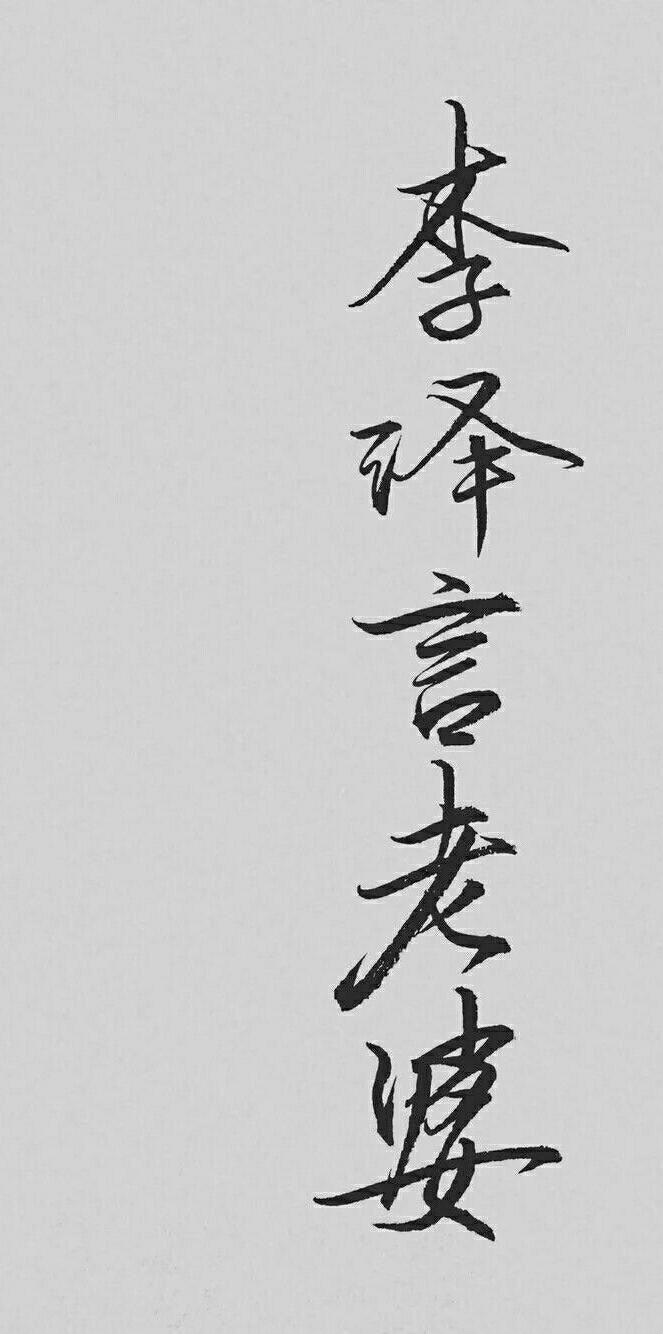 李译言老婆